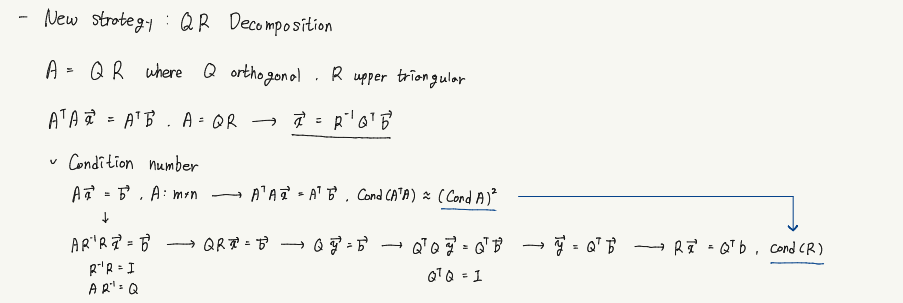 - New strategy : QR Decomposition
A = QR where Q orthogonal . R upper triangular
AᵀA x⃗ = Aᵀb⃗ . A = QR → x⃗ = R⁻¹Qᵀb⃗
✓ Condition number
Ax⃗ = b⃗ , A : m×n → AᵀAx⃗ = Aᵀb⃗ , Cond(AᵀA) ≈ (Cond A)²
↓
AR⁻¹Rx⃗ = b⃗ → QRx⃗ = b⃗ → Qy⃗ = b⃗ → QᵀQy⃗ = Qᵀb⃗ → y⃗ = Qᵀb⃗ → Rx⃗ = Qᵀb , cond(R)
R⁻¹R = I
QᵀQ = I
AR⁻¹ = Q